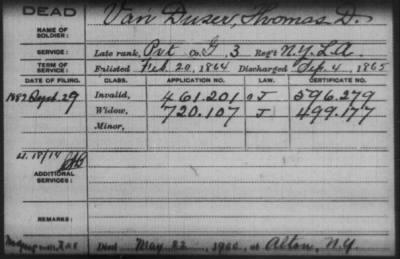 DEAD
NAME OF SOLDIER: Van Duser, Thomas D.
SERVICE: Late rank, Pvt Co. G, 3 Reg't N.Y. L.A.
TERM OF SERVICE: Enlisted Feb. 20, 1864 Discharged Sep. 4, 1865
DATE OF FILING. CLASS. APPLICATION NO. LAW. CERTIFICATE NO.
29 Invalid, 461.201 J 596.279
Widow, 720.107 J 499.177
Minor,
ADDITIONAL SERVICES:
REMARKS:
Died May 22, 1900, at Alton, N.Y.